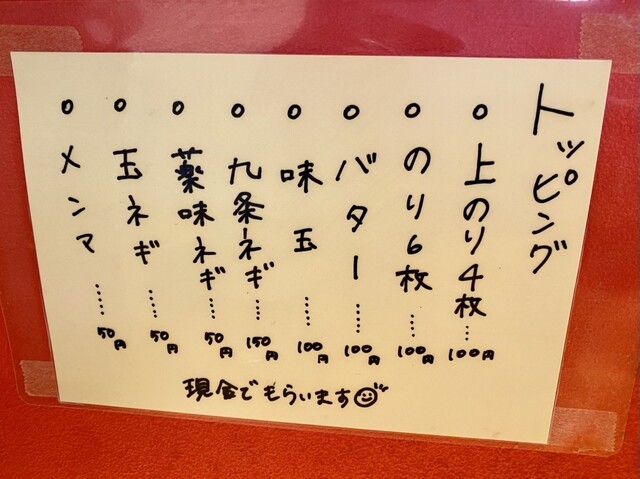 トッピング
○ 上のり4枚…100円
○ のり6枚……100円
○ バター……100円
○ 味玉……100円
○ 九条ネギ……150円
○ 薬味ネギ……50円
○ 玉ネギ……50円
○ メンマ……50円
現金でもらいます